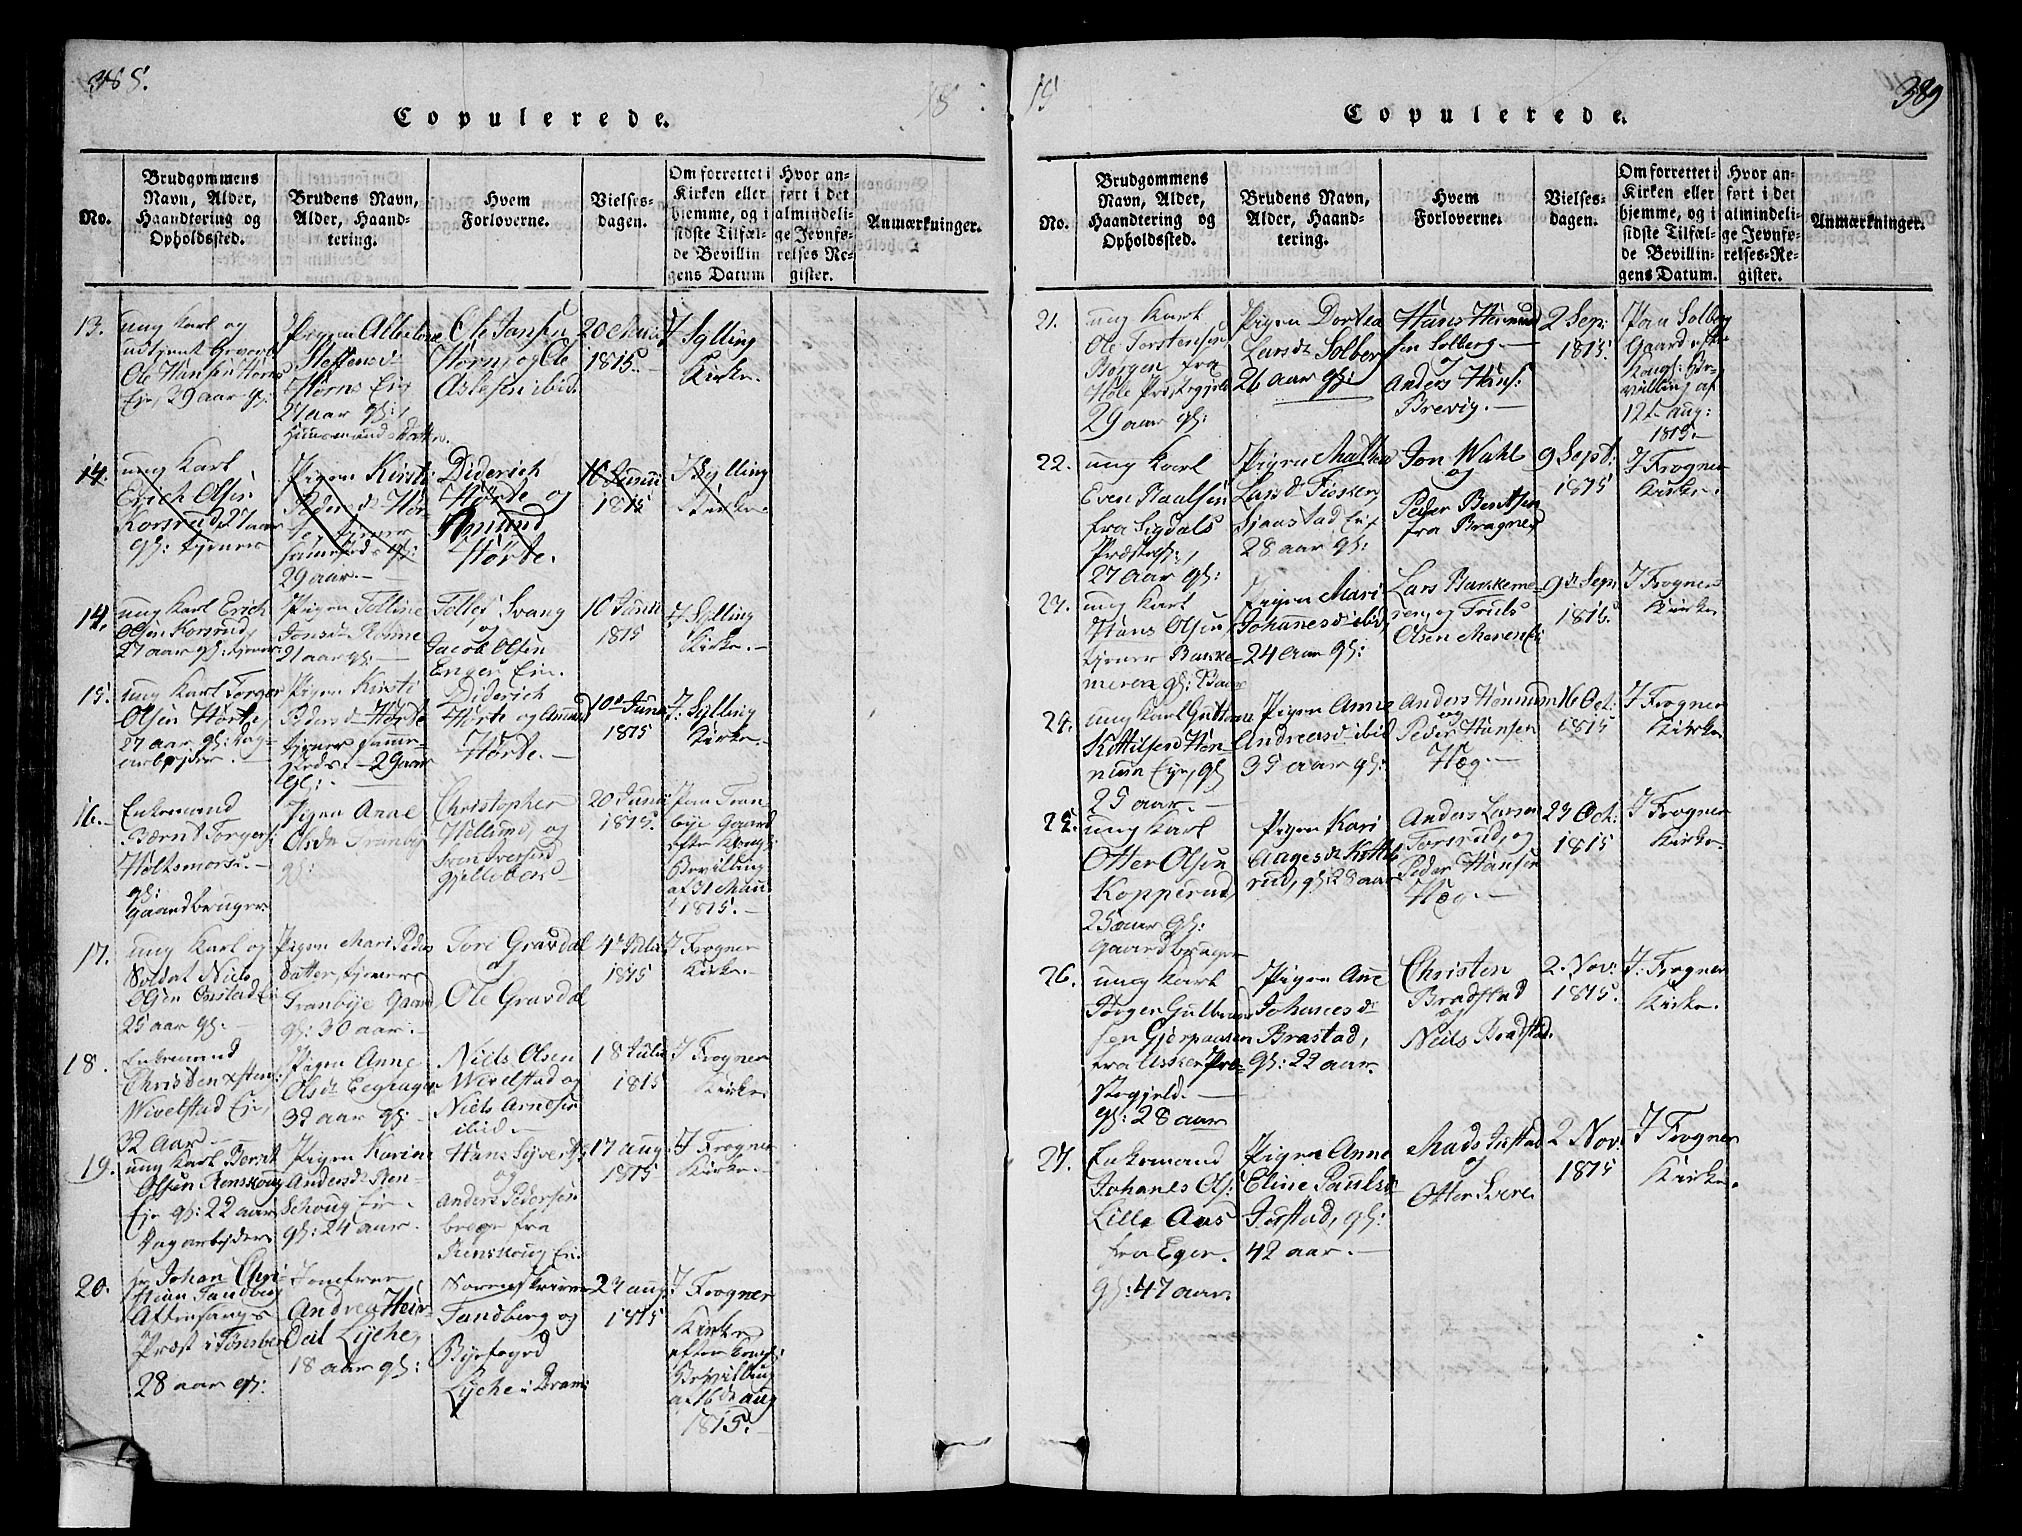 385.
18
Copulerede.
No.
Brudgommens
Navn, Alder,
Haandtering og
Opholdssted.
Brudens Navn,
Alder, Haand-
tering.
Hvem
Forloverne.
Vielses-
dagen.
Om forrettet i
Kirken eller
hjemme, og i
sidste Tilfæl-
de Bevillin
gens Datum
Hvor an-
ført i det
almindeli-
ge Jevnfø-
relses-Re-
gister.
Anmærkninger.
13.
ung Karl og
Ole Hansen Hørns
Eje, 29 aar gl:
Pigen
Steffensdr
Hørns Eje
27 aar gl:
Ole Jansen
Hørn, og Ole
ibid.
20 Maii
1815.
I Sylling
Kirke.
14.
ung Karl
Erich Olsen
Korsrud, 27 aar
gl: tjener
Pigen Kirsti
Pedersdr Hør-
te, tjener
sammesteds gl:
29 aar.
Diderich
Hørte og
Amund
Hørte.
10 Junii
1815
I Sylling
Kirke.
14.
ung Karl Erich
Olsen Korsrud,
27 aar gl: tjener
Pigen Tolline
Jonsdr
21 aar gl:
Tolles Svang
og
Jacob Olsen
Enger Eie.
10 Junii
1815
I Sylling
Kirke.
15.
ung Karl Torger
Olsen Hørte,
27 aar gl: dag-
arbejder.
Pigen Kirsti
Pedersdr Hørte
tjener samme-
steds. 29 aar
gl:
Diderich
Hørte og Amund
Hørte.
10de Junii
1815
I: Sylling
Kirke.
16.
Enkemand
Bærnt Torgers:
Holtsmarsu.
gl:
gaardbruger.
Pigen Anne
Olsdr Tranby
gl:
Christopher
og
Sven Iversen
20 Junii
1815.
Paa Tran
bye Gaard
efter Kongl:
Bevilling
af 31 Maii
1815.
17.
ung Karl og
Soldat Niels
Olsen Onstad Eie
25 aar gl.
Pigen Mari Peders
datter, tjener
Tranbye Gaard
gl: 30 aar.
Tore Gravdal
og
Ole Gravdal
4de Julii
1815
I Frogner
Kirke.
18.
Enkemand
Christen
Wivelstad Eje,
32 aar
Pigen Anne
Olsdr
32 aar gl:
Niels Olsen
Wivelstad og
Niels Arnesen
ibid.
18 Julii
1815
I Frogner
Kirke.
19.
ung Karl Bernt
Olsen Renskoug
Eje gl: 22 aar
Dagarbejder
Pigen Karine
Andersdr Ren-
Schoug Eie.
gl: 24 aar.
Hans
og
Anders Pedersen
begge fra
Renskoug Eie.
17 aug:
1815
I Frogner
Kirke.
20.
hr Johan Chri-
stian Tandberg
Aftensangs
Præst i Tønsberg
28 aar gl:
Jomfrue
Andrea
Lyche,
18 aar gl:
Sorenskriver
Tandberg og
Byefoged
Lyche i Dram:
23 aug:
1815
I Frogner
Kirke
efter Kongl:
Bevilling
af 16de aug
1815.
15
389
Copulerede.
No.
Brudgommens
Navn, Alder,
Haandtering og
Opholdssted.
Brudens Navn,
Alder, Haand-
tering.
Hvem
Forloverne.
Vielses-
dagen.
Om forrettet i
Kirken eller
hjemme, og i
sidste Tilfæl-
de Bevillin-
gens Datum.
Hvor an-
ført i det
almindeli-
ge Jevnfø-
relses-Re-
gister.
Anmærkninger.
21.
ung Karl
Ole Torstensen
Borgen fra
Hole Præstegjeld
29 aar gl:
Pigen Dortea
Larsdr Solberg
26 aar gl:
Hans
sen Solberg.
og
Anders Hans:
Brevig.
2 Sep:
1815.
Paa Solberg
Gaard efter
Kongl: Be-
villing af
12te aug:
1815.
22.
ung Karl
Even Paalsen
fra Sigdals
Præstegl:,
27 aar gl:
Pigen Mathea
Larsdr
Sjaastad Eie
28 aar gl:
Jon Wahl
og
Peder Bentsen
fra Bragnes
9 Sept:
1815
I Frogner
Kirke.
23.
ung Karl
Hans Olsen
tjener Bakke-
meren gl: Baar
Pigen Mari
Johannesdr ibid,
24 Aar gl:
Lars Bakkeme-
ren, og Truls
Olsen Meren Ei
9de Sep:
1815.
I Frogner
Kirke.
24.
ung Karl Guttorm
Kittilsen Høn-
num Eje, gl
25 aar.
Pigen Anne
Andreasdr ibid
35 aar gl:
Anders Hønnum
og
Peder Hansen
Hæg.
16 Oct:
1815
I Frogner
Kirke.
25.
ung Karl
Otter Olsen
Kopperud,
25 aar gl:
Gaardbruger
Pigen Kari
Aagesdr
rud, gl: 28 aar
Anders Larsen
Torsrud, og
Peder Hansen
Hæg.
23 Oct:
1815
I Frogner
Kirke.
26.
ung Karl
Jørgen Gulbrand
sen Gjerpaasen
fra Asker Præ-
stegjeld.
gl: 28 aar
Pigen Ane
Johanesdr
Brastad,
gl: 22 aar.
Christen
Bradstad
og
Niels Bradstad.
2. Nov:
1815.
I: Frogner
Kirke.
27.
Enkemand
Johanes Ols:
Lille Aas
fra Eger.
gl: 47 aar.
Pigen Anne
Eline Paulsdr
Justad, gl:
42 aar.
Mads Justad
og
Otter Svere
2 Nov:
1815
I Frogner
Kirke.